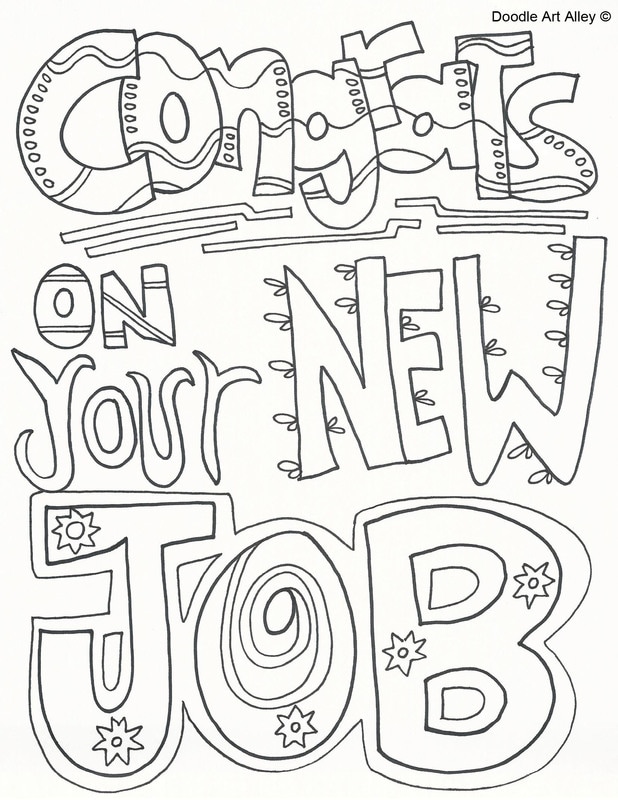 Doodle Art Alley ©
Congrats
ON
YOUR
NEW
JOB